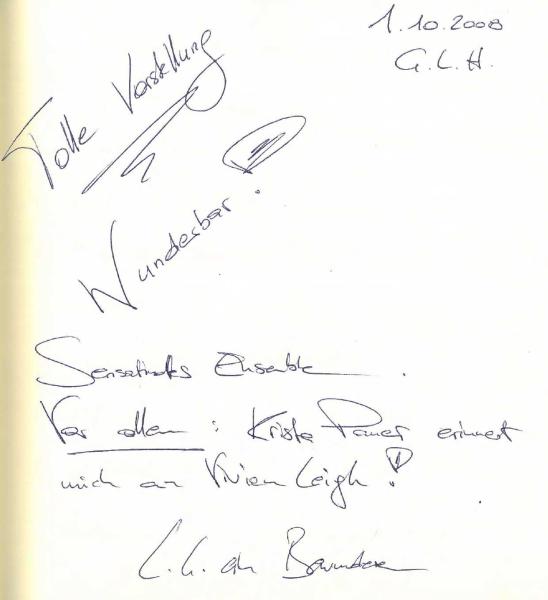 1.10.2008
G.L.H.
Tolle Vorstellung
Wunderbar!
Sensationelles Ensemble.
Vor allem: Krista erinnert
mich an Vivien Leigh!